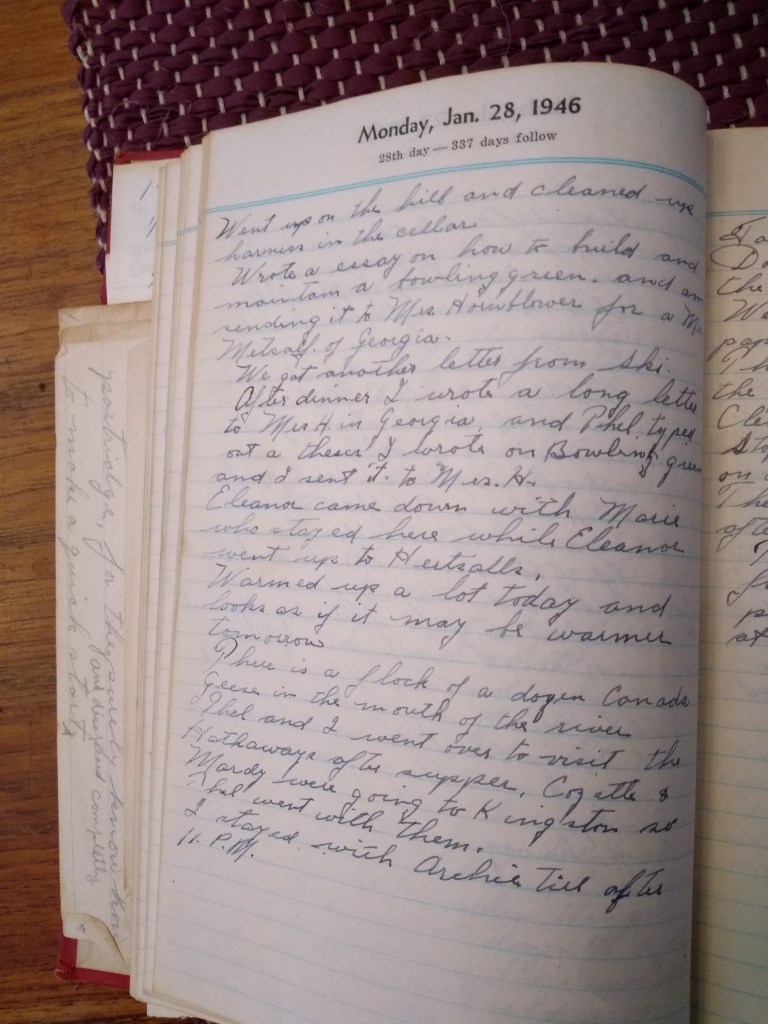 Monday, Jan. 28, 1946
28th day — 337 days follow
Went up on the hill and cleaned up
harness in the cellar.
Wrote a essay on how to build and
maintain a bowling green. and am
sending it to Mrs Hornblower for a
Metcalf. of Georgia.
We got another letter from Ski.
After dinner I wrote a long letter
to Mrs H. in Georgia, and Phel. typed
out a thesis I wrote on Bowling green
and I sent it. to Mrs. H.
Eleanor came down with Marie
who stayed here while Eleanor
went up to
Warmed up a lot today and
looks as if it may be warmer
tomorrow
There is a flock of a dozen Canada
Geese in the mouth of the river
Phel and I went over to visit the
Hathaways after supper, Cozette &
Mardy were going to Kingston so
Phel went with them.
I stayed with Archie till after
11. P.M.
partridge, for they surely know how
to make a quick start
and disappeared completely
the
on